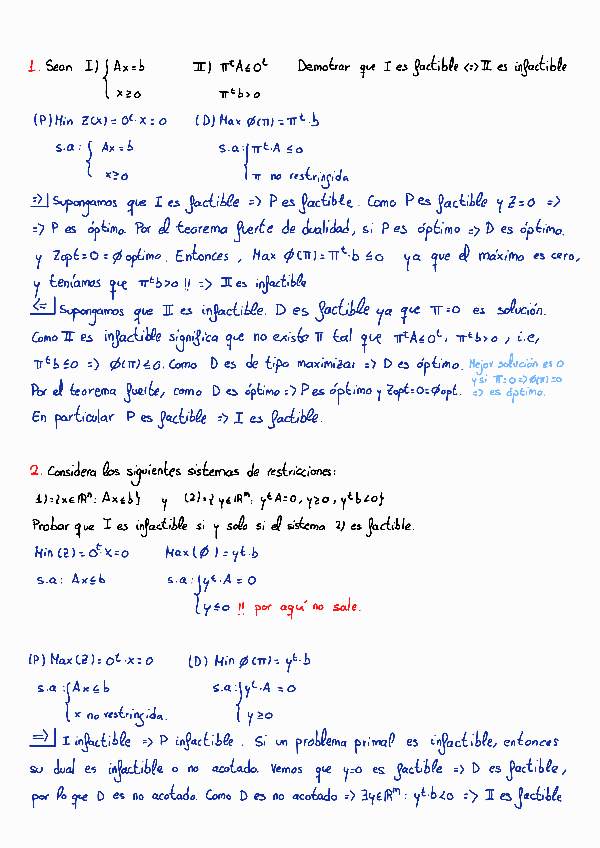 1. Sean I) { Ax=b II) πᵗA≤0ᵗ Demotrar que I es factible <=> II es infactible
x≥0 πᵗb>0
(P) Min Z(x) = 0ᵗ·x = 0 (D) Max Φ(π) = πᵗ·b
s.a: { Ax = b s.a: { πᵗ·A ≤ 0
x≥0 π no restringida
=>| Supongamos que I es factible => P es factible. Como P es factible y Z=0 =>
=> P es óptimo. Por el teorema fuerte de dualidad, si P es óptimo => D es óptimo.
y Zopt=0=Φoptimo. Entonces, Max Φ(π)=πᵗ·b ≤0 ya que el máximo es cero,
y teníamos que πᵗb>0 !! => II es infactible
<=| Supongamos que II es infactible. D es factible ya que π=0 es solución.
Como II es infactible significa que no existe π tal que πᵗA≤0ᵗ, πᵗb>0, i.e,
πᵗb≤0 => Φ(π)≤0. Como D es de tipo maximizar => D es óptimo. Mejor solución es 0
y si π=0=>Φ(π)=0
Por el teorema fuerte, como D es óptimo => P es óptimo y Zopt=0=Φopt. => es óptimo.
En particular P es factible => I es factible.
2. Considera los siguientes sistemas de restricciones:
1)={x∈ℝⁿ: Ax≤b} y (2)={y∈ℝᵐ: yᵗA=0, y≥0, yᵗb<0}
Probar que I es infactible si y solo si el sistema 2) es factible.
Min (Z) = 0ᵗ·x=0 Max(Φ) = yᵗ·b
s.a: Ax≤b s.a: { yᵗ·A = 0
y≤0 !! por aquí no sale.
(P) Max(Z) = 0ᵗ·x=0 (D) Min Φ(π) = yᵗ·b
s.a: { Ax≤b s.a: { yᵗ·A = 0
x no restringida. y≥0
=>| I infactible => P infactible. Si un problema primal es infactible, entonces
su dual es infactible o no acotado. Vemos que y=0 es factible => D es factible,
por lo que D es no acotado. Como D es no acotado => ∃y∈ℝᵐ: yᵗ·b<0 => II es factible